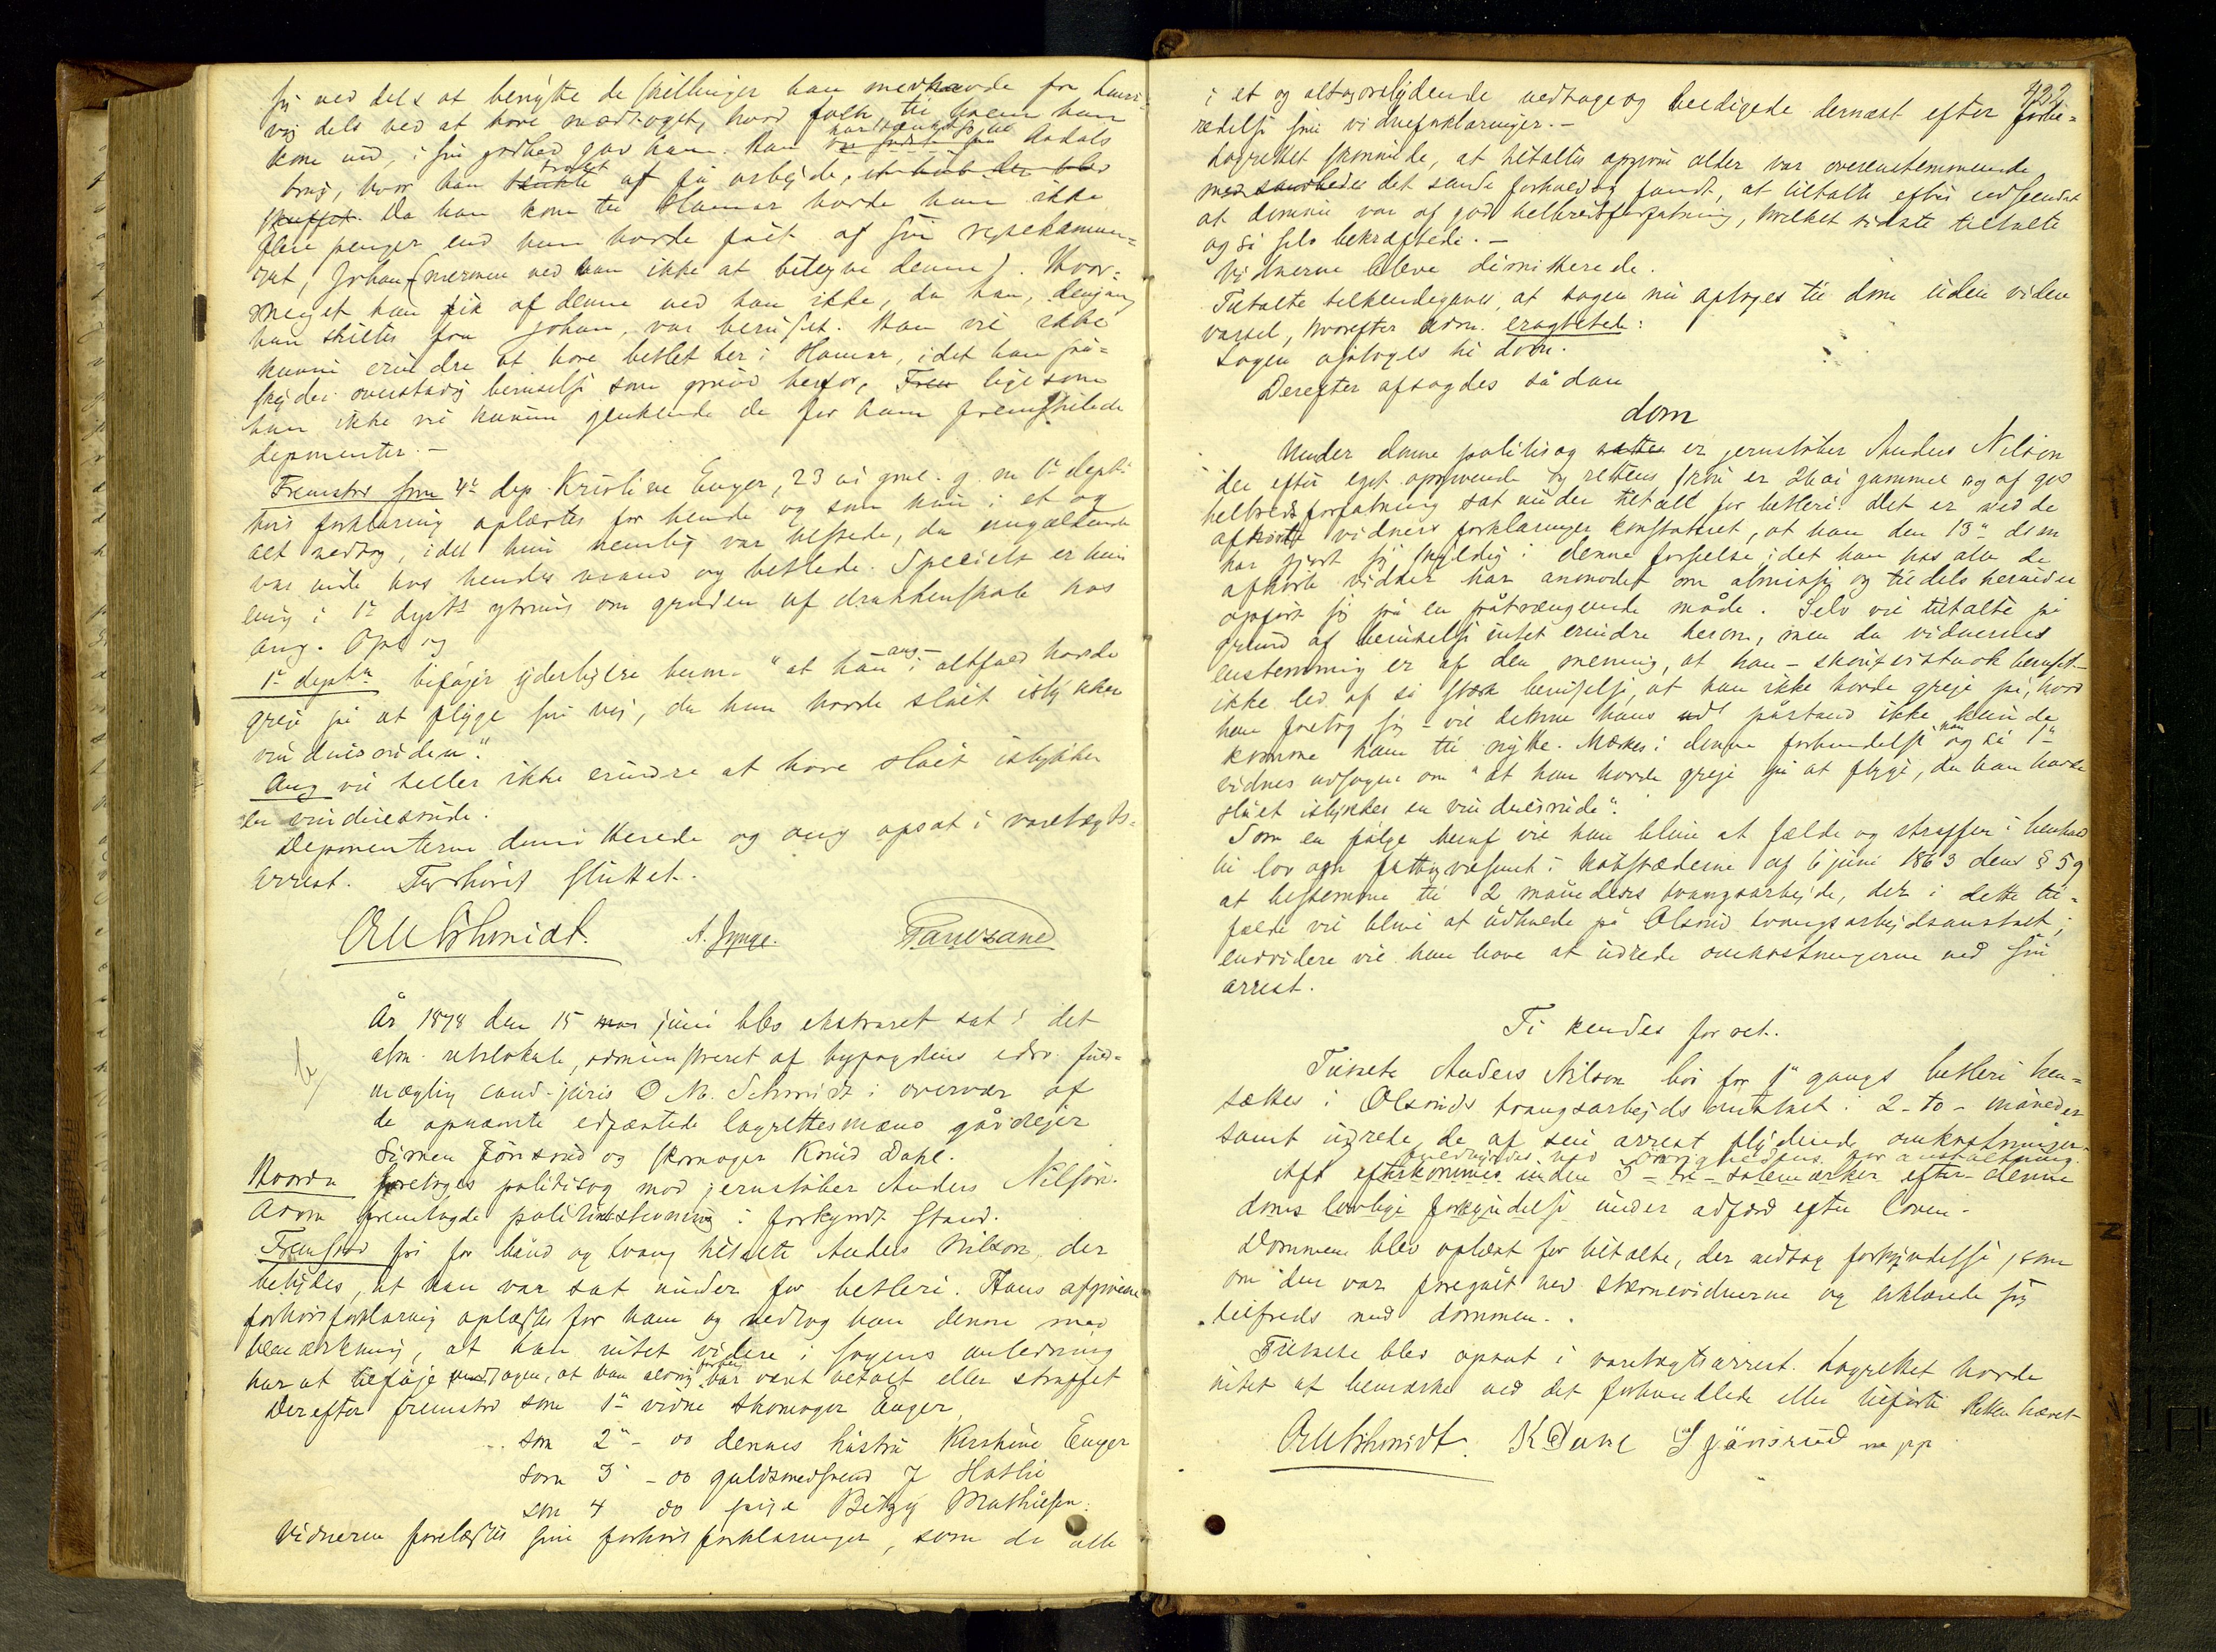 sig ved dels at benytte de skillinger han medhavde fra Lauer-
vig dels ved at have modtaget, hvad folk, til hvem han
kom ind, i sin godhed gav ham. Han har tænkt sig til Aadals
brug, hvor han troede at få arbejde,
skuffet. Da han kom til Hamar havde han ikke
flere penger end han havde fået af sin rejsekamme-
rat, Johan (nermere ved han ikke at betegne denne). Hvor-
meget han fik af denne ved han ikke, da han, dengang
han skiltes fra Johan, var beruset. Han vil ikke
kunne erindre at have betlet her i Hamar, idet han på-
skyder overstadig beruselse som grund herfor, ligesom
han ikke vil kunne gjenkende de for ham fremstillede
deponenter. -
Fremstod som 4de dep. Kristine Enger, 23 år gml. g. m. 1ste dept.
hvis forklaring oplæstes for hende og som hun i et og
alt vedtog, idet hun nemlig var tilstede, da angældende
var inde hos hendes mand og betlede. Specielt er hun
enig i 1ste depts ytring om graden af drukkenskab hos
ang. Opl. og
1ste deptn tilføjer yderligere bem. "at han ang- i altfald havde
greje på at flygte sin vej, da han havde slået istykker
vinduesruden."
Ang vil heller ikke erindre at have slået istykker
en vinduesrude.
Deponenterne demitterede og ang opsat i varetægts-
arrest. Forhøret sluttet.
O M Schmidt. A. Lynge. Farresand
År 1878 den 15 juni blev ekstraret sat i det
alm. retslokale, administreret af byfogdens edsv. fuld-
mægtig cand. juris O M. Schmidt i overvær af
de opnævnte edfæstede lagrettesmænd gårdejer
Simen Jönsrud og skomager Knud Dahl.
Hvorda foretoges politisag mod jernstøber Anders Nilson.
Adm fremlagde politistevning i forkyndt stand.
Fremstod fri for bånd og tvang tiltalte Anders Nilson, der
betydes, at han var sat under for betleri. Hans afgivne
forhørsforklaring oplæstes for ham og vedtog han denne med
bemærkning, at han intet videre i sagens anledning
har at tilføje undtagen, at han aldrig forhen har vært tiltalt eller straffet
Derefter fremstod som 1ste vidne skomager Enger
som 2de - do dennes hustru Kirstine Enger
som 3 - do guldsmedsvend J Hathi
som 4 do pige Betzy Mathiesen.
Vidnerne forelæstes sine forhørsforklaringer, som de alle
422
i et og alt gjorelydende vedtoge og beedigede dernæst efter forbe-
redelse sine vidneforklaringer. -
Lagrettet skønnede, at tiltaltes opgivne alder var overensstemmende
med det sande forhold og fandt, at tiltalte efter udseendet
at dømme var af god helbredsforfatning, hvilket sidste tiltalte
også selv bekræftede. -
Vidnerne bleve dimitterede.
Tiltalte tilkendegaves, at sagen nu optoges til dom uden videre
varsel, hvorefter adm. eragtede:
Sagen optoges til dom.
Derefter afsagdes sådan
dom
Under denne politisag er jernstøber Anders Nilson
der efter eget opgivende og rettens skøn er 26 år gammel og af god
helbredsforfatning sat under tiltale for betleri. Det er ved de
afhørte vidners forklaringer konstateret, at han den 13de dsm
har gjort sig skyldig i denne forseelse, idet han hos alle de
afhørte vidner har anmodet om almisse og tildels herunder
opført sig på en påtrængende måde. Selv vil tiltalte på
grund af beruselse intet erindre herom, men da vidnernes
enstemmig er af den mening, at han - skønt stærk beruset -
ikke led af så stærk beruselse, at han ikke havde greje på, hvad
han foretog sig - vil denne hans påstand ikke kunde
komme ham til nytte. Mærkes i denne forbindelse kan også 1ste
vidnes udsagn om "at han havde greje på at flygte, da han havde
slået istykker en vinduesrude".
Som en følge heraf vil han blive at fælde og straffes i henhold
til lov om fattigvæsenet i købstæderne af 6 juni 1863 dens § 59
at bestemme til 2 måneders tvangsarbejde, der i dette til-
fælde vil blive at udholde på Olsruds tvangsarbejdsanstalt;
endvidere vil han have at udrede omkostningerne ved sin
arrest.
Ti kendes for ret.
Tiltalte Anders Nilson bør for 1ste gangs betleri hen-
sættes i Olsruds tvangsarbejdsanstalt i 2 - to - måneder
samt udrede de af sin arrest flydende omkostninger.
ved øvrighedens foranstaltning.
Aft efterkommes inden 3 - tre - solemærker efter denne
doms lovlige forkyndelse under adfærd efter loven.
Dommen blev oplæst for tiltalte, der vedtog forkyndelse, som
om den var foregået ved stævnevidnerne og erklærede sig
tilfreds med dommen.
Tiltalte blev opsat i varetægtsarrest. Lagrettet havde
intet at bemærke ved det forhandlede eller tilførte. Retten hævet
O M Schmidt. K Dahl S Jönsrud m p p